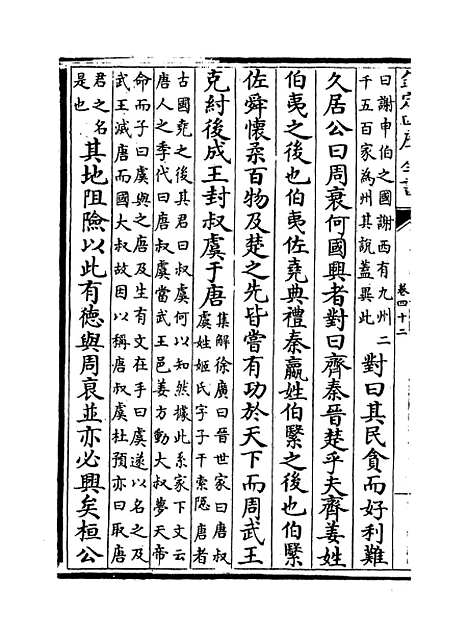 欽定四庫全書
卷四十二
曰謝申伯之國謝西有九州二
千五百家為州其說蓋異此
對曰其民貪而好利難
久居公曰周衰何國興者對曰齊秦晉楚乎夫齊姜姓
伯夷之後也伯夷佐堯典禮秦嬴姓伯翳之後也伯翳
佐舜懷柔百物及楚之先皆嘗有功於天下而周武王
克紂後成王封叔虞于唐
集解徐廣曰晉世家曰唐叔
虞姓姬氏字子于索隠唐者
古國堯之後其君曰叔虞何以知然據此系家下文云
唐人之季代曰唐叔虞當武王邑姜方動大叔夢天帝
命而子曰虞與之唐及生有文在手曰虞遂以名之及
武王滅唐而國大叔故因以稱唐叔虞杜預亦曰取唐
君之名
是也
其地阻險以此有德與周衰並亦必興矣桓公